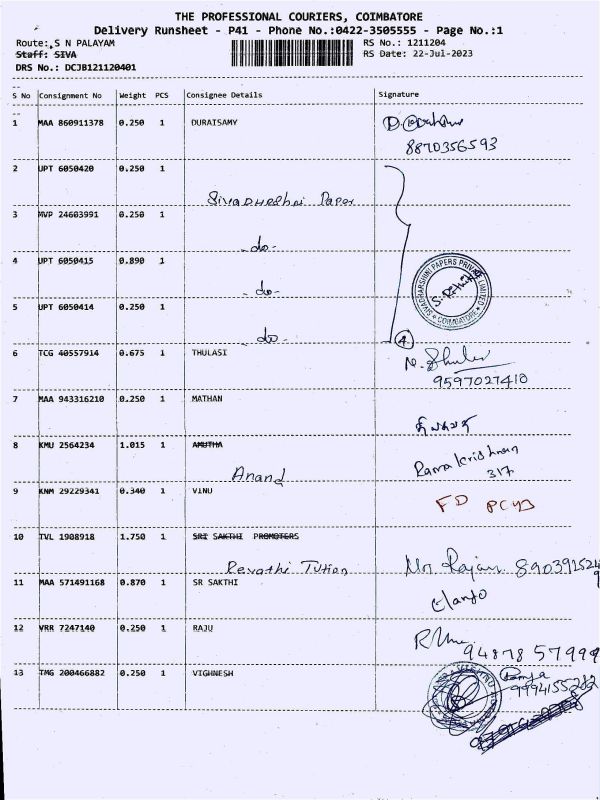 THE PROFESSIONAL COURIERS, COIMBATORE
Delivery Runsheet - P41 - Phone No.:0422-3505555 - Page No.:1
Route: S N PALAYAM RS No.: 1211204
Staff: SIVA RS Date: 22-Jul-2023
DRS No.: DCJB121120401
S No Consignment No Weight PCS Consignee Details Signature
1 MAA 860911378 0.250 1 DURAISAMY
8870356593
2 UPT 6050420 0.250 1
Sivadharshni Paper
3 MVP 24603991 0.250 1
- do -
4 UPT 6050415 0.890 1
- do -
SIVADHARSHINI PAPERS PRIVATE LIMITED
* COIMBATORE *
5 UPT 6050414 0.250 1
- do -
4
6 TCG 40557914 0.675 1 THULASI
9597027410
7 MAA 943316210 0.250 1 MATHAN
8 KMU 2564234 1.015 1 AMUTHA
Anand
Rama krishnan
317
9 KNM 29229341 0.340 1 VINU
FD
10 TVL 1908918 1.750 1 SRI SAKTHI PROMOTERS
Revathi Tution
11 MAA 571491168 0.870 1 SR SAKTHI
12 VRR 7247140 0.250 1 RAJU
94878 57999
13 TMG 200466882 0.250 1 VIGHNESH